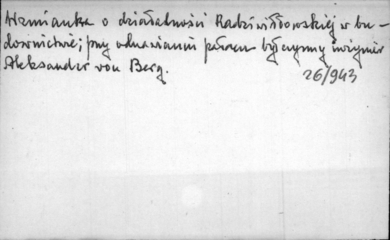 Wzmianka o działalności Radziwiłłowskiej w bu-
downictwie; przy odnawianiu pałacu był czynny inżynier
Aleksander von Berg.
26/943